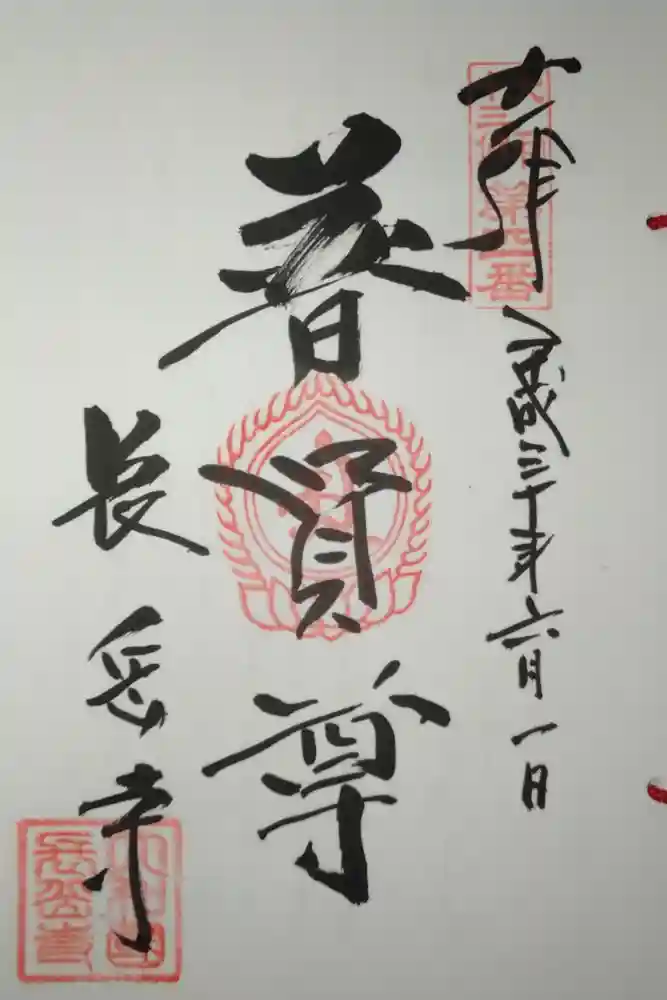 奉拝
平成三十年六月一日
普賢尊
長岳寺
三佛 第四番